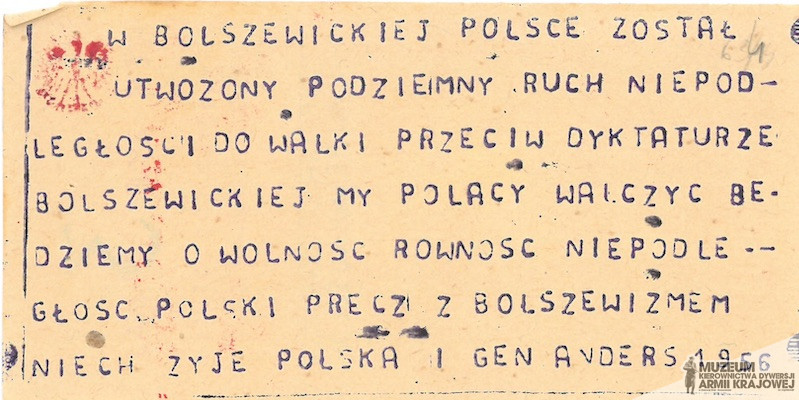 W BOLSZEWICKIEJ POLSCE ZOSTAŁ
UTWOZONY PODZIEMNY RUCH NIEPOD-
LEGŁOSCI DO WALKI PRZECIW DYKTATURZE
BOLSZEWICKIEJ MY POLACY WALCZYC BE-
DZIEMY O WOLNOSC ROWNOSC NIEPODLE--
GŁOSC POLSKI PRECZ Z BOLSZEWIZMEM
NIECH ZYJE POLSKA I GEN ANDERS 1956
MUZEUM
KIEROWNICTWA DYWERSJI
ARMII KRAJOWEJ